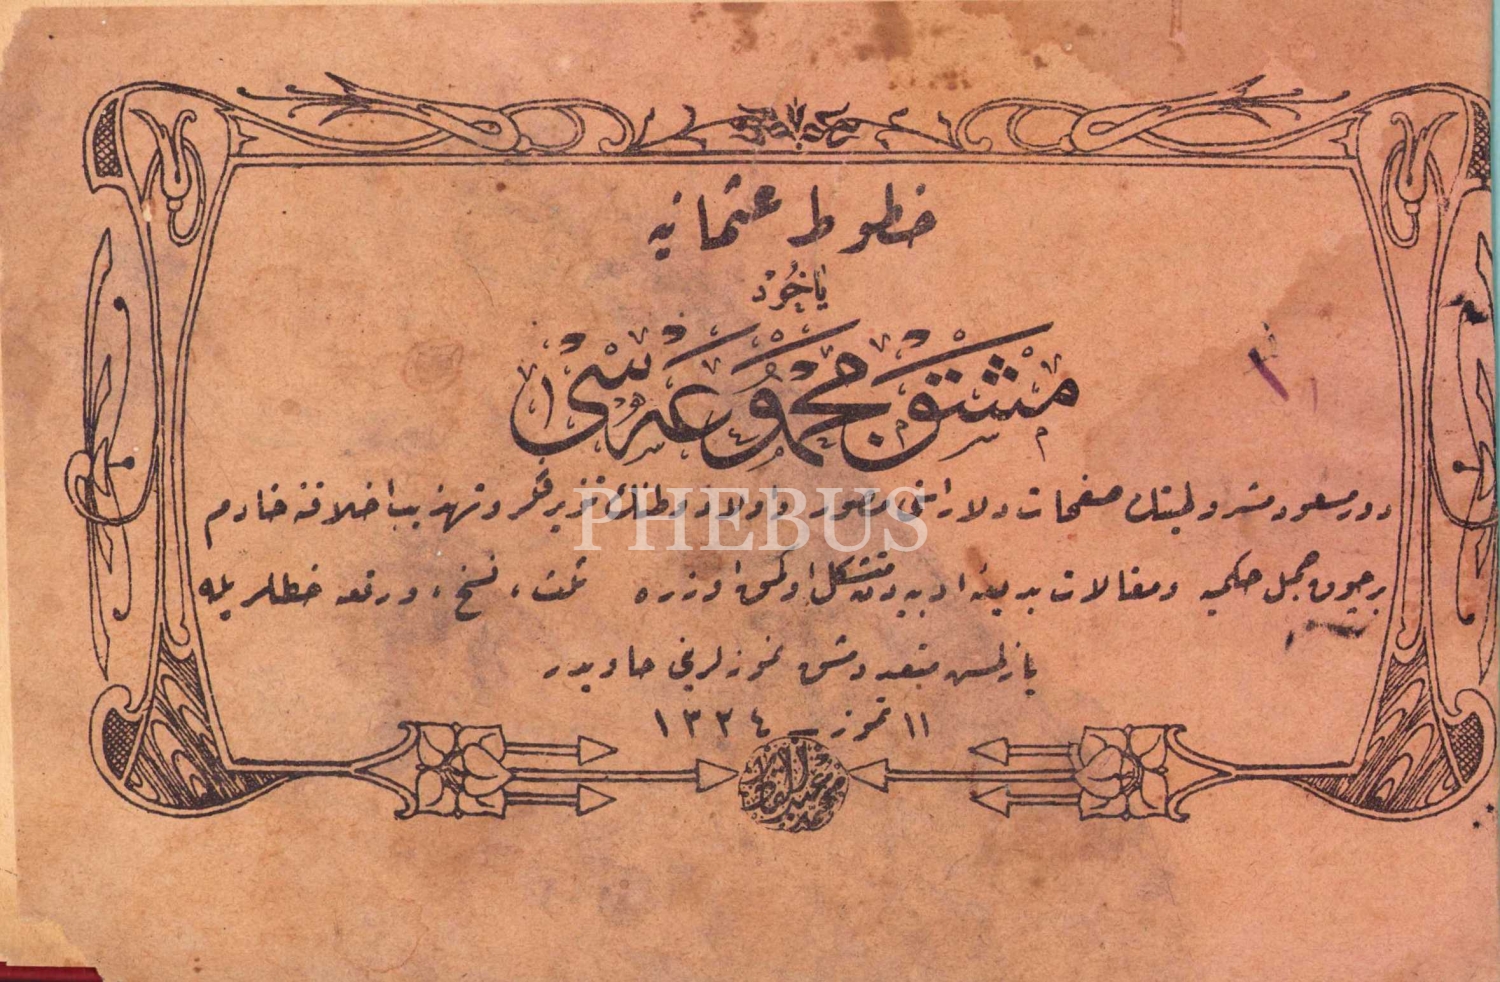 خطوط عثمانیه
یاخُود
مشق مجموعه سی
دور مسعود مشروطیتك صفحات دلاراسنی مصور و اولاد وطنك تنویر فكر و تهذیب اخلاقنه خادم
برچوق جمل حكمیه و مقالات بدیعهٔ ادبیه‌دن متشكل اولمق اوزره ثلث، نسخ، و رقعه خطلریله
یازلمش متعدد مشق نمونه‌لرینی حاویدر
١١ تموز ١٣٢٤
PHEBUS